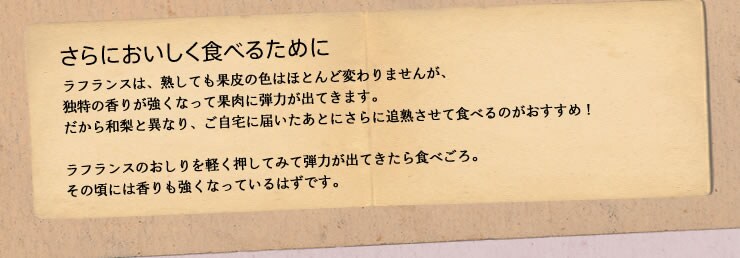 さらにおいしく食べるために
ラフランスは、熟しても果皮の色はほとんど変わりませんが、
独特の香りが強くなって果肉に弾力が出てきます。
だから和梨と異なり、ご自宅に届いたあとにさらに追熟させて食べるのがおすすめ！
ラフランスのおしりを軽く押してみて弾力が出てきたら食べごろ。
その頃には香りも強くなっているはずです。